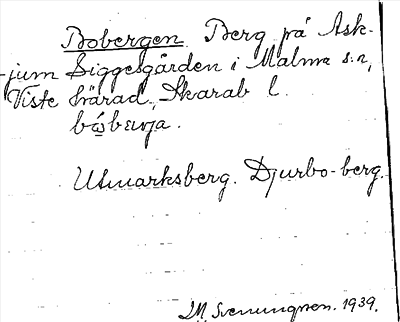 Bobergen Berg på Ask-
jum Siggesgården i Malma s:n,
Viste härad, Skarab l.
Utmarksberg. Djurbo-berg.
M. Svenungsson. 1939.